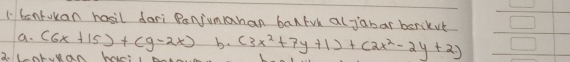 1. tentukan hasil dari Penjumlahan bentuk aljabar berikut
a. (6x + 15) + (9 - 2x) b. (3x² + 7y + 1) + (2x² - 2y + 2)
2. tentukan hasil